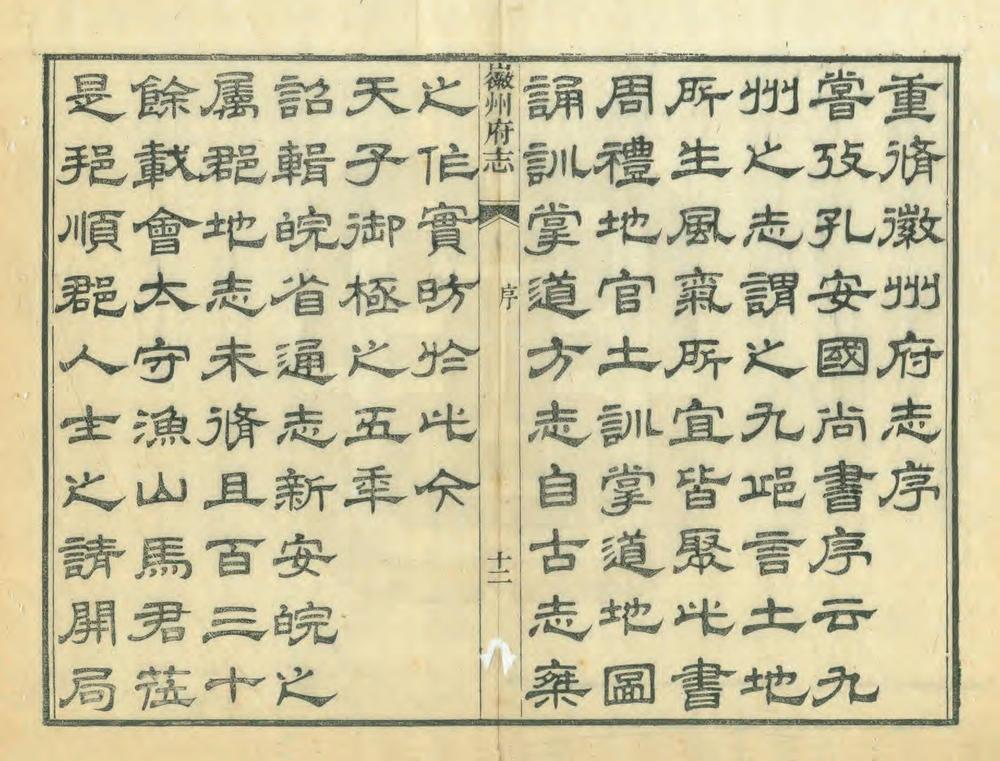 重脩徽州府志序
嘗攷孔安國尚書序云九
州之志謂之九邱言土地
所生風氣所宜皆聚此書
周禮地官土訓掌道地圖
誦訓掌道方志自古志乘
徽州府志
序
十二
之作實昉於此今
天子御極之五年
詔輯皖省通志新安皖之
屬郡地志未脩且百三十
餘載會太守漁山馬君蒞
是邦順郡人士之請開局